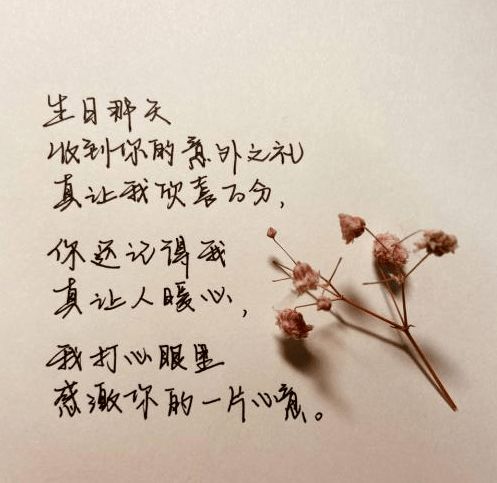 生日那天
收到你的意外之礼
真让我欣喜万分，
你还记得我
真让人暖心，
我打心眼里
感激你的一片心意。